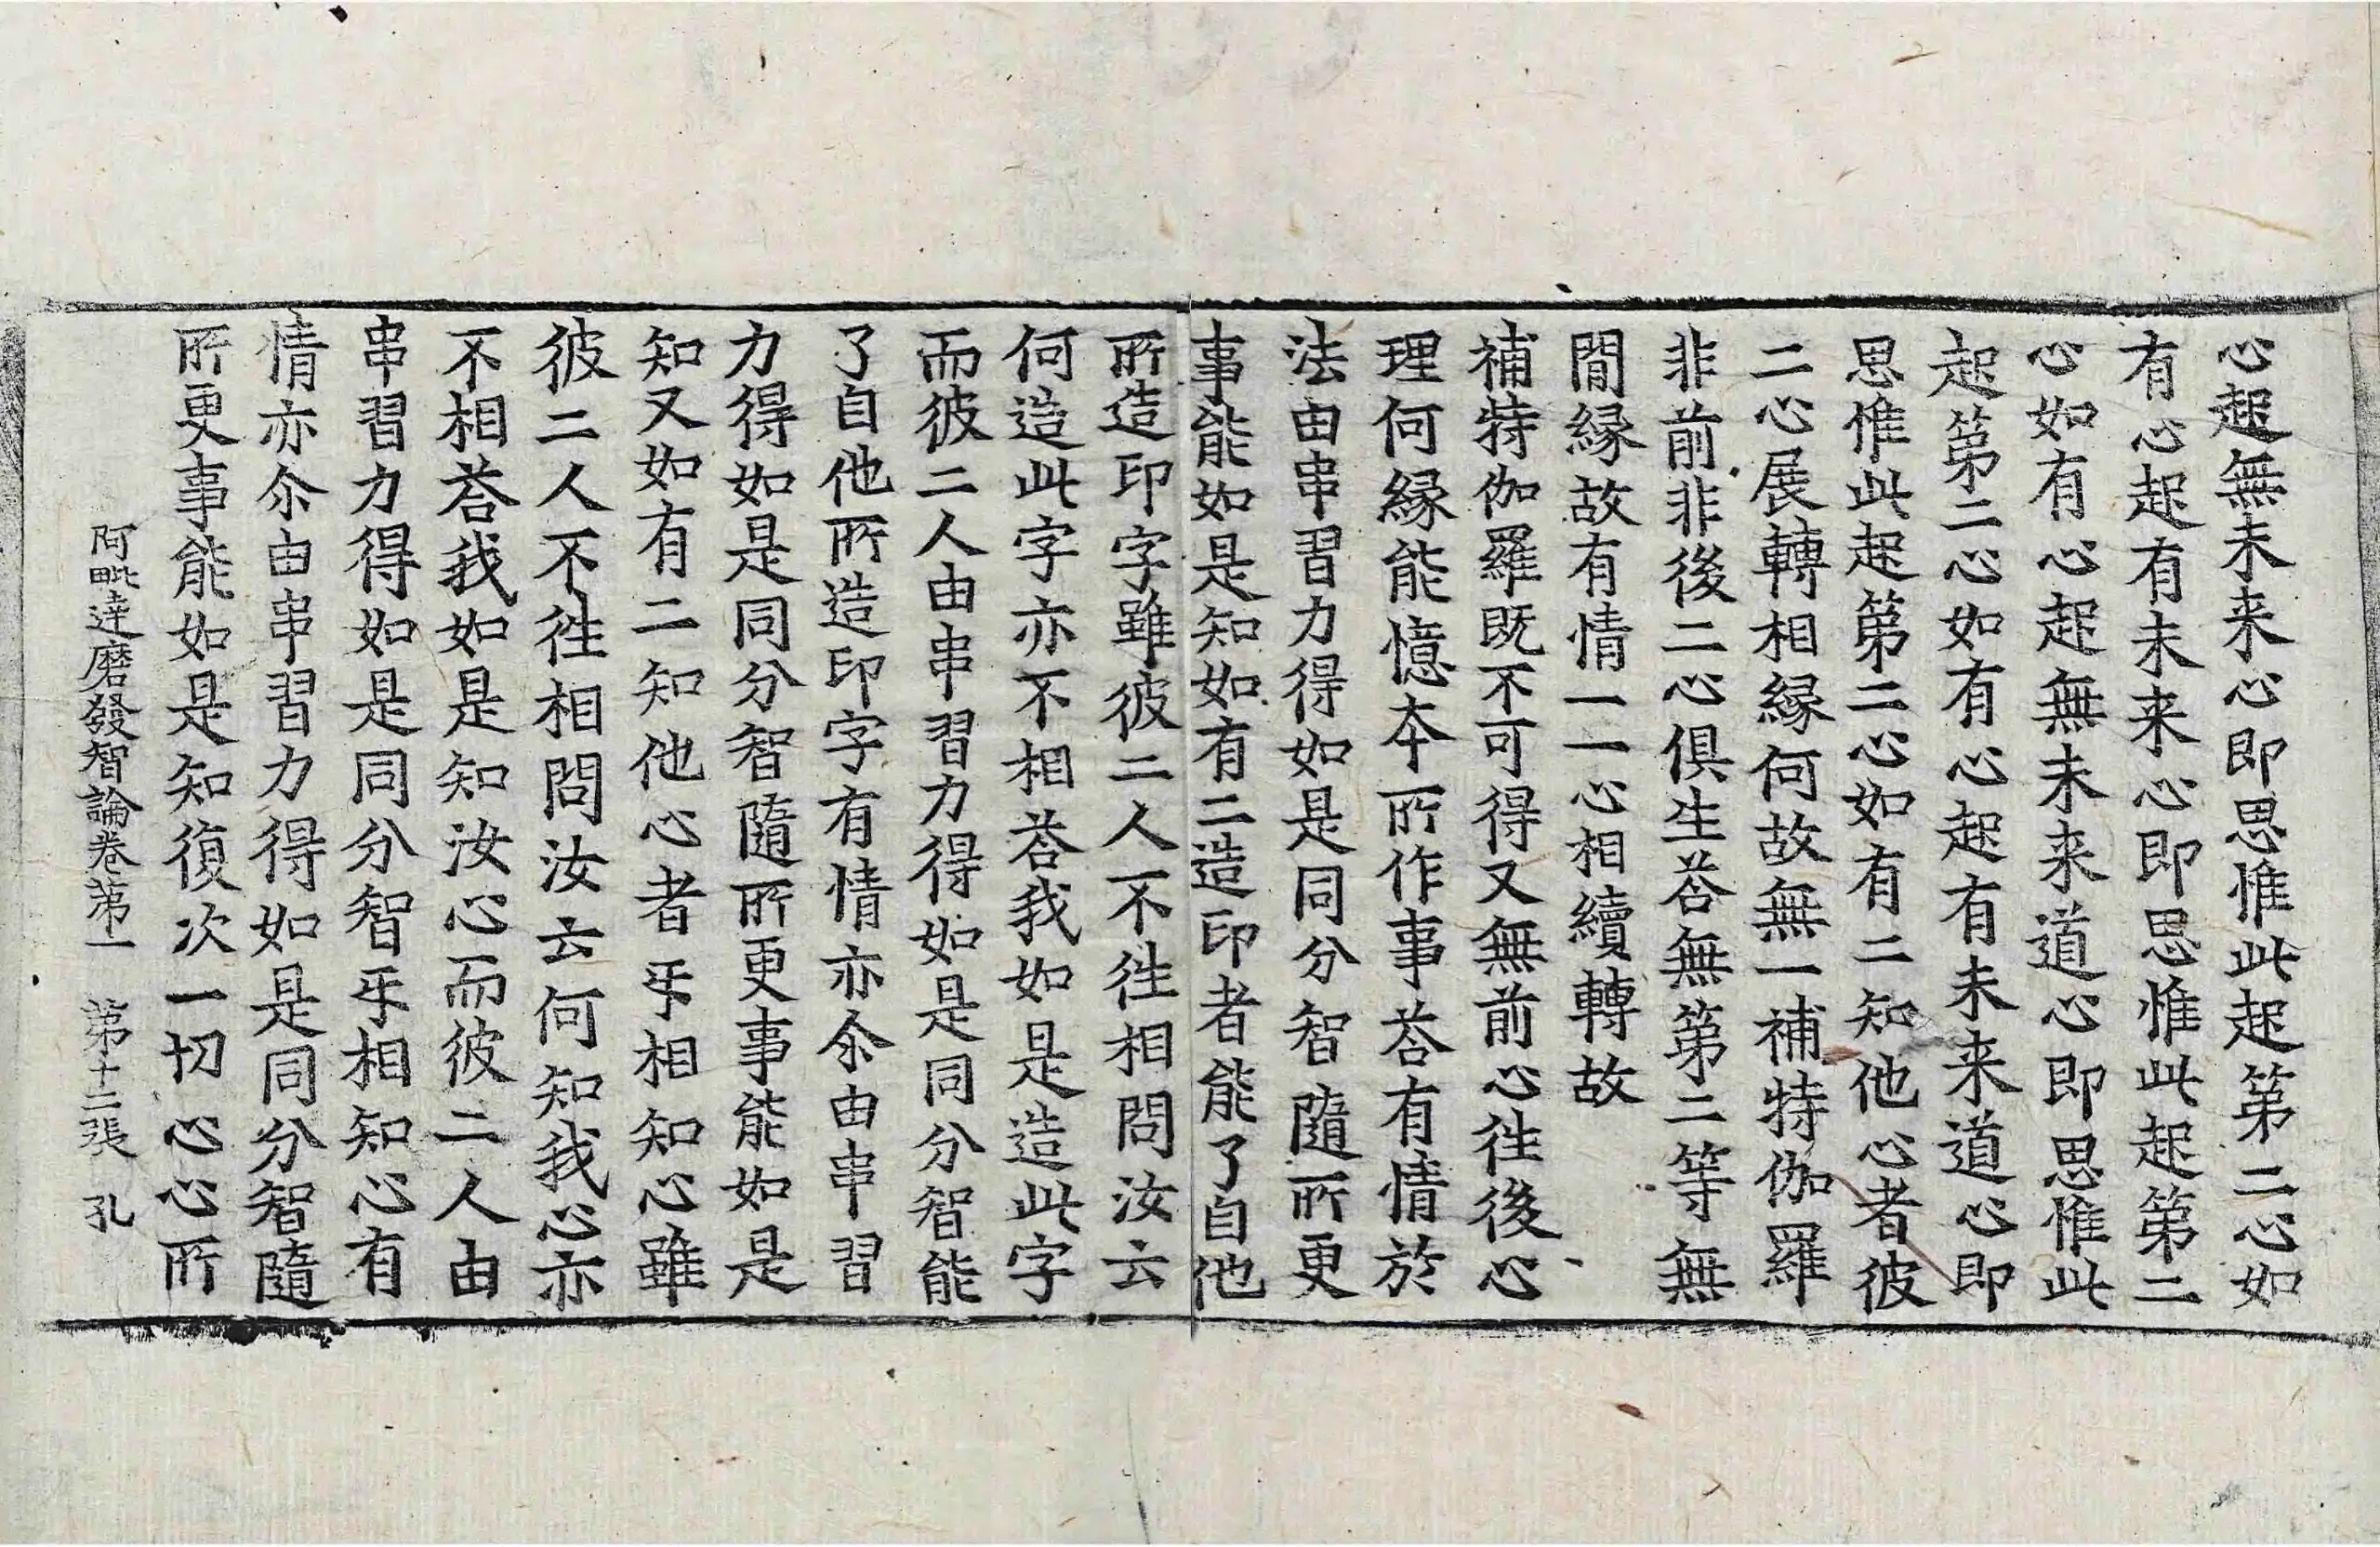 心起無未来心即思惟此起第二心如
有心起有未来心即思惟此起第二
心如有心起無未来道心即思惟此
起第二心如有心起有未来道心即
思惟此起第二心如有二知他心者彼
二心展轉相縁何故無一補特伽羅
非前非後二心俱生荅無第二等無
間縁故有情一一心相續轉故
補特伽羅既不可得又無前心徃後心
理何縁能憶本所作事荅有情於
法由串習力得如是同分智隨所更
事能如是知如有二造印者能了自他
所造印字雖彼二人不徃相問汝云
何造此字亦不相荅我如是造此字
而彼二人由串習力得如是同分智能
了自他所造印字有情亦尒由串習
力得如是同分智隨所更事能如是
知又如有二知他心者㸦相知心雖
彼二人不徃相問汝云何知我心亦
不相荅我如是知汝心而彼二人由
串習力得如是同分智㸦相知心有
情亦尒由串習力得如是同分智隨
所更事能如是知復次一切心心所
阿毗達磨發智論卷第一　第十二張　孔